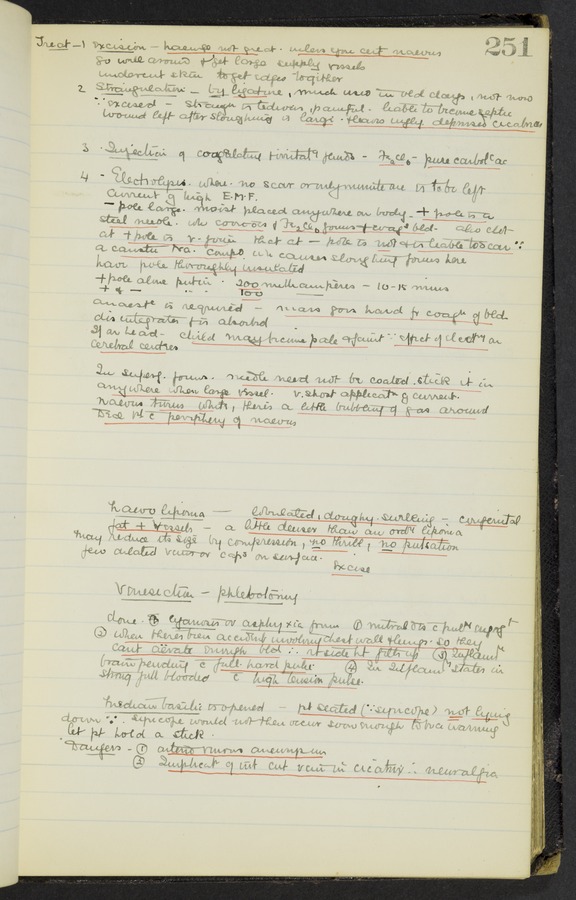 251
Treat - 1 Excision - haemge not great. unless you cut naevus
go well around & get large supply vessels
undercut skin to get edges together
2 Strangulation - by ligature, much used in old days, not now
∵ excised - Slough is tedious, painful. liable to become septic
wound left after sloughing is large. & leaves ugly depressed cicatrices
3 Injection of coagulating & irritatg fluids - Fe2Cl6 - pure carbolc ac
4 - Electrolysis. where no scar or only minute one is to be left
Current of high E.M.F.
- pole large moist placed anywhere on body. + pole is a
steel needle. wh corrodes & Fe2Cl6 forms & coags bld. also clot
at + pole is v. firm that at - pole is not & is liable to scar ∵
a caustic Na. compd wh causes sloughing forms here
have pole thoroughly insulated
+ pole alone put in 200 milliampères - 10-15 mins
+ & - " " 100
anaesth is required - mass goes hard fr coagn of bld
disintegrates & is absorbd
If on head - child may become pale & faint ∵ effect of electy on
cerebral centres
In superf. forms. needle need not be coated. stick it in
anywhere when large vessel. v. short applicatn of current.
Naevus turns white, there's a little bubbling of gas around
Deal 1st c periphery of naevus
Naevo lipoma - lobulated, doughy swelling - congenital
fat + vessels - a little denser than an ordy lipoma
may reduce its size by compression, no thrill, no pulsation
few dilated veins or caps on surface.
Excise
Venesection - phlebotomy
done. cyanosis or asphyxia from ① mitral dis c pulmy
② when there's been accident involving chest wall & lungs. so they
cant aërate enough bld ∴ rt side ht fills up ③ Inflamn
brain pending c full hard pulse ④ In inflamy states in
strong full blooded c high tension pulse.
Median basilic is opened - pt seated (∵ syncope) not lying
down ∵ syncope would not then occur soon enough to be a warning
let pt hold a stick.
Dangers - ① arterio venous aneurysm
② Implicatn of int cut vein in cicatrix ∴ neuralgia